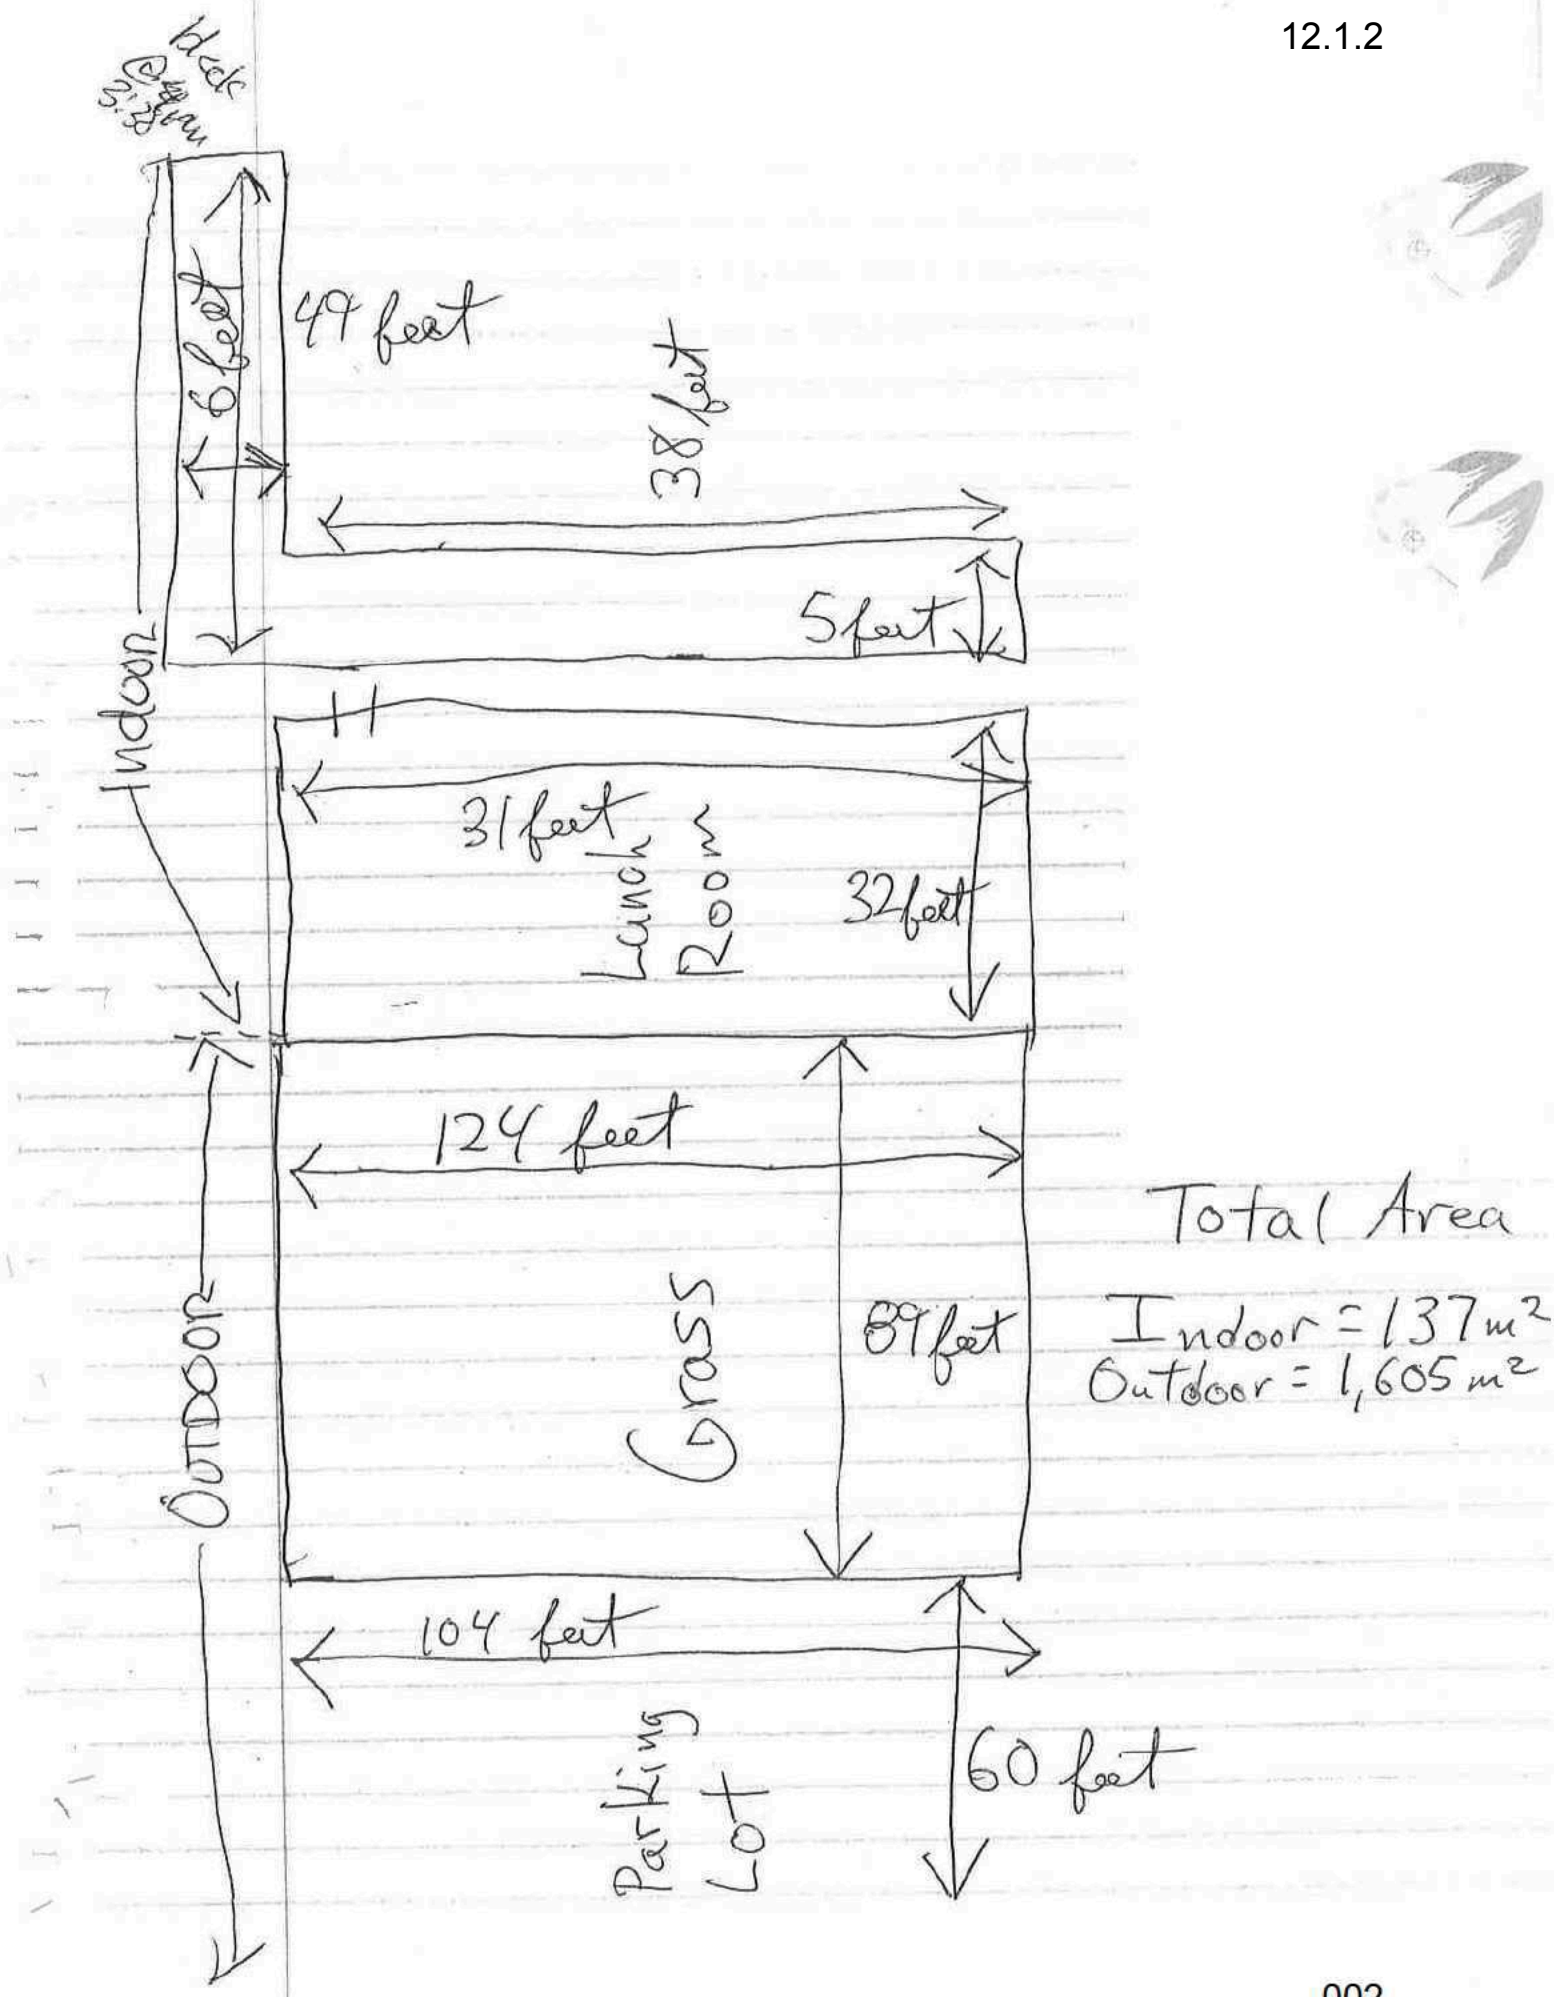 12.1.2
6 feet
49 feet
38 feet
5 feet
Indoor
31 feet
Lunch
Room
32 feet
124 feet
89 feet
Grass
OUTDOOR
Total Area
Indoor = 137 m²
Outdoor = 1,605 m²
104 feet
60 feet
Parking
Lot
002